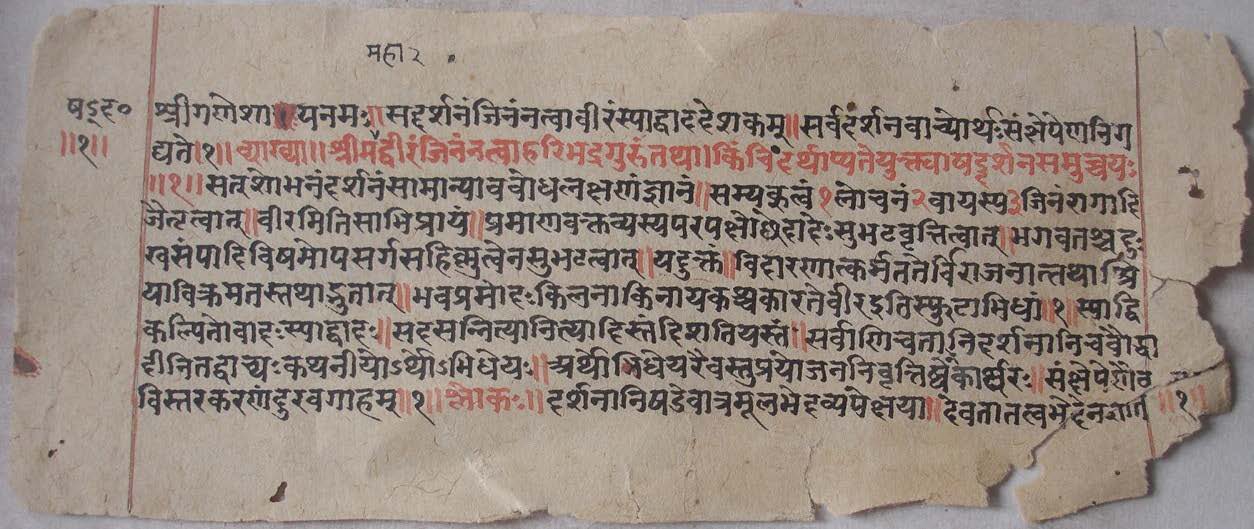 महा २
षड्द०
॥१॥
श्रीगणेशायनमः॥सद्दर्शनंजिनंनत्वावीरंस्याद्वाददेशकम्॥सर्वदर्शनवाच्योर्थःसंक्षेपेणनिग
द्यते।१॥व्याख्या॥श्रीमद्वीरंजिनंनत्वाहरिभद्रगुरुंतथा।किंचिदर्थाप्यतेयुक्त्याषड्दर्शनसमुच्चयः
॥१॥सत्शोभनंदर्शनंसामान्यावबोधलक्षणंज्ञानं॥सम्यक्त्वं१लोचनं२वायस्य३जिनंरागादि
जेतृत्वात्॥वीरमितिसाभिप्रायं॥प्रमाणवक्तव्यस्यपरपक्षोछेदादेःसुभटवृत्तित्वात्॥भगवतश्चदुः
खसंपादिविषमोपसर्गसहिष्णुत्वेनसुभटत्वात्॥यदुक्तं॥विदारणात्कर्मततेर्विराजनात्तपःश्रि
याविक्रमतस्तथाद्भुतात्॥भवप्रमोदःकिलनाकिनायकश्चकारतेवीरइतिस्फुटाभिधां॥१॥स्याद्वि
कल्पितोवादःस्याद्वादः॥सदसन्नित्यानित्यादिस्तंदिशतियस्तं॥सर्वाणिचतानिदर्शनानिचबौद्धा
दीनितद्वाच्यःकथनीयोऽर्थोऽभिधेयः॥
विस्तरकरणंदुरवगाहम्॥१॥श्लोकः॥दर्शनानिषडेवात्रमूलभेदव्यपेक्षया॥देवतातत्वभेदेन ॥१॥